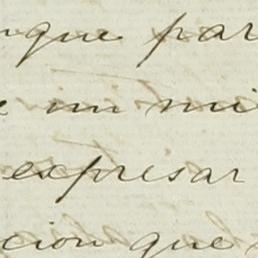 nque par
un mi
expresar
cion que